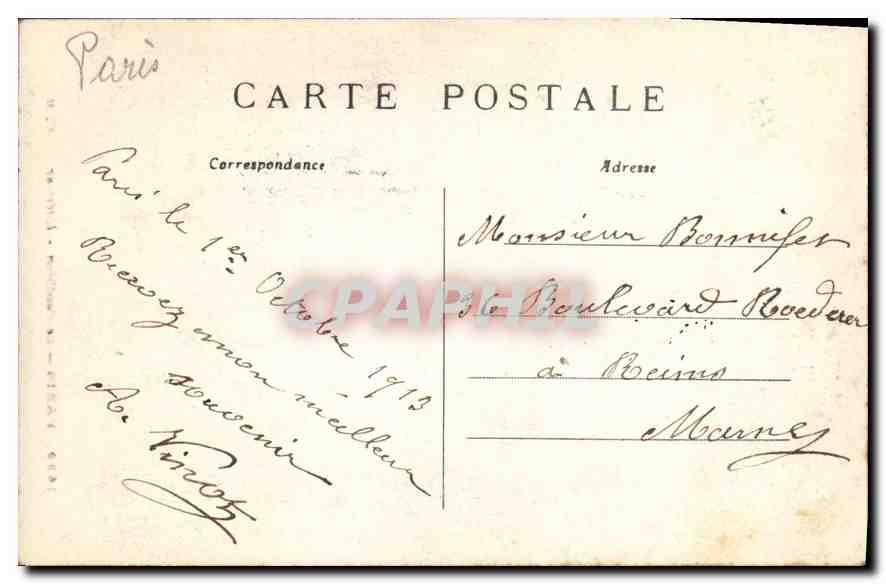 Paris
CARTE POSTALE
Correspondance
Adresse
Paris le 1er Octobre 1913
Recevez mon meilleur
souvenir
A. Vinot
Monsieur Bonnifet
36 Boulevard Roederer
à Reims
Marne
CPAPHIL